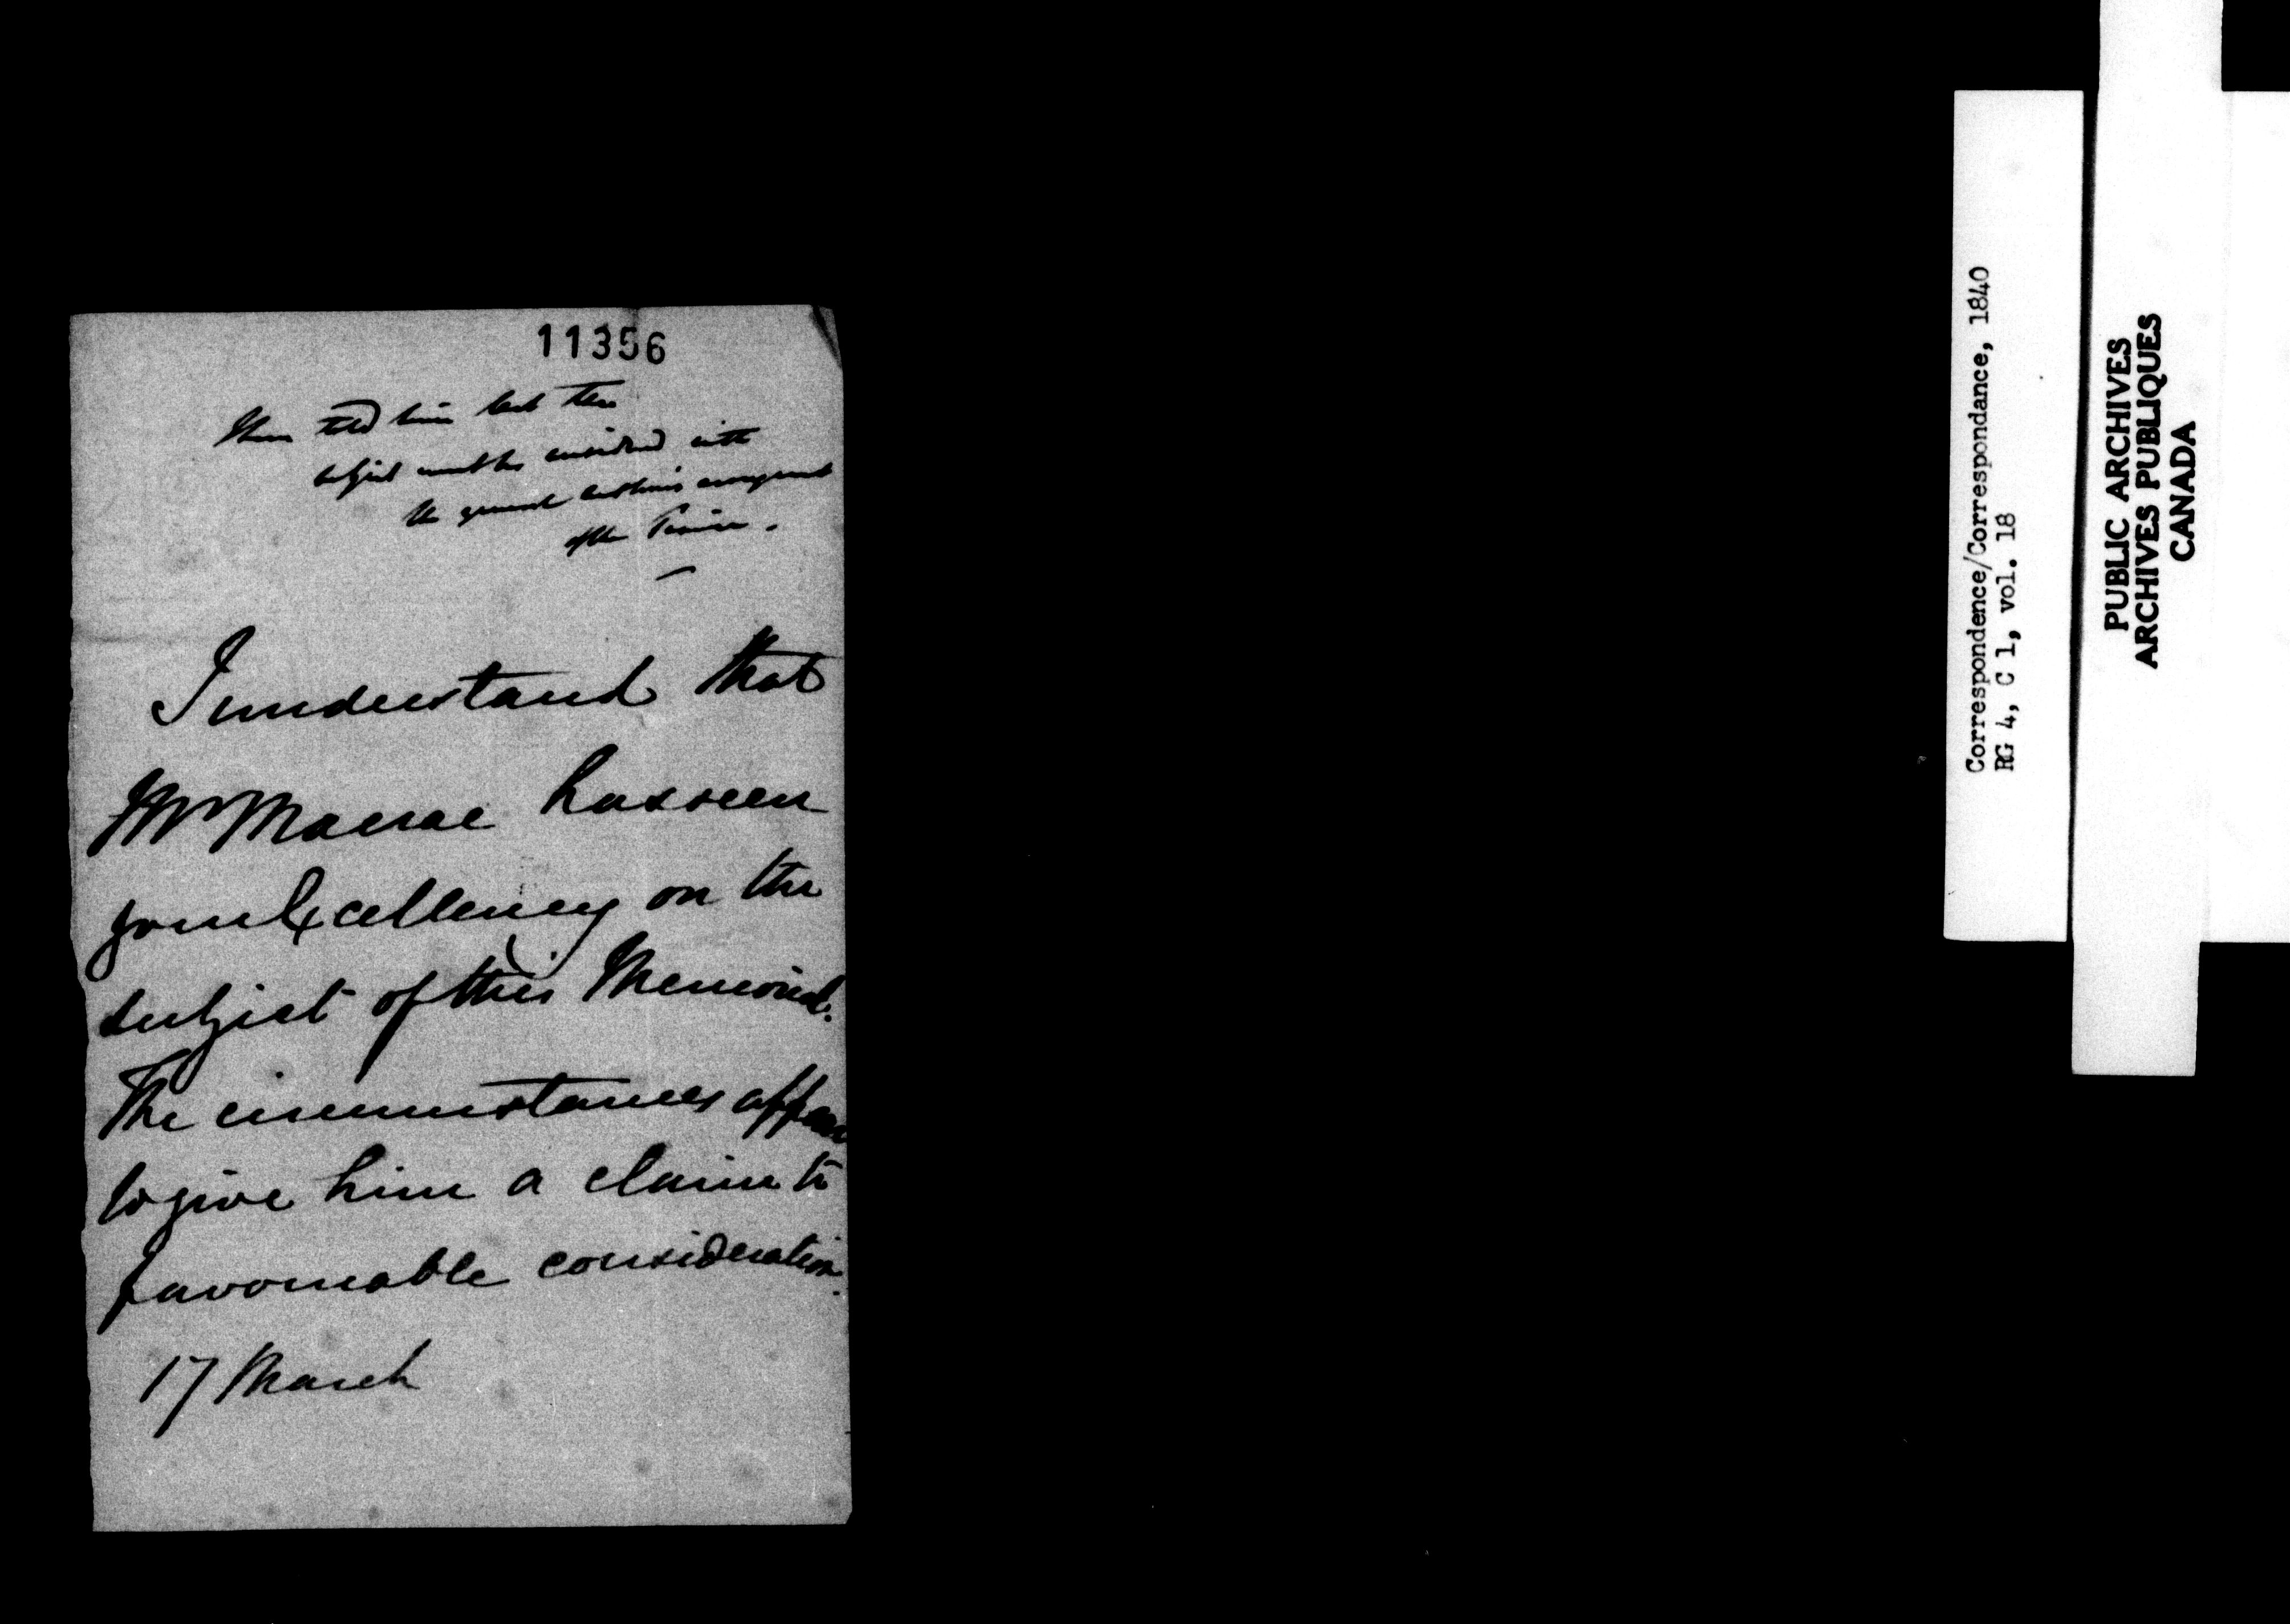 11356
told him that the
subject must be considered with
the general
of the
I understand that
Mr Macrae has seen
your Excellency on the
subject of this Memorial.
The circumstances appear
to give him a claim to
favourable consideration.
17 March
Correspondence/Correspondance, 1840
RG 4, C 1, vol. 18
PUBLIC ARCHIVES
ARCHIVES PUBLIQUES
CANADA